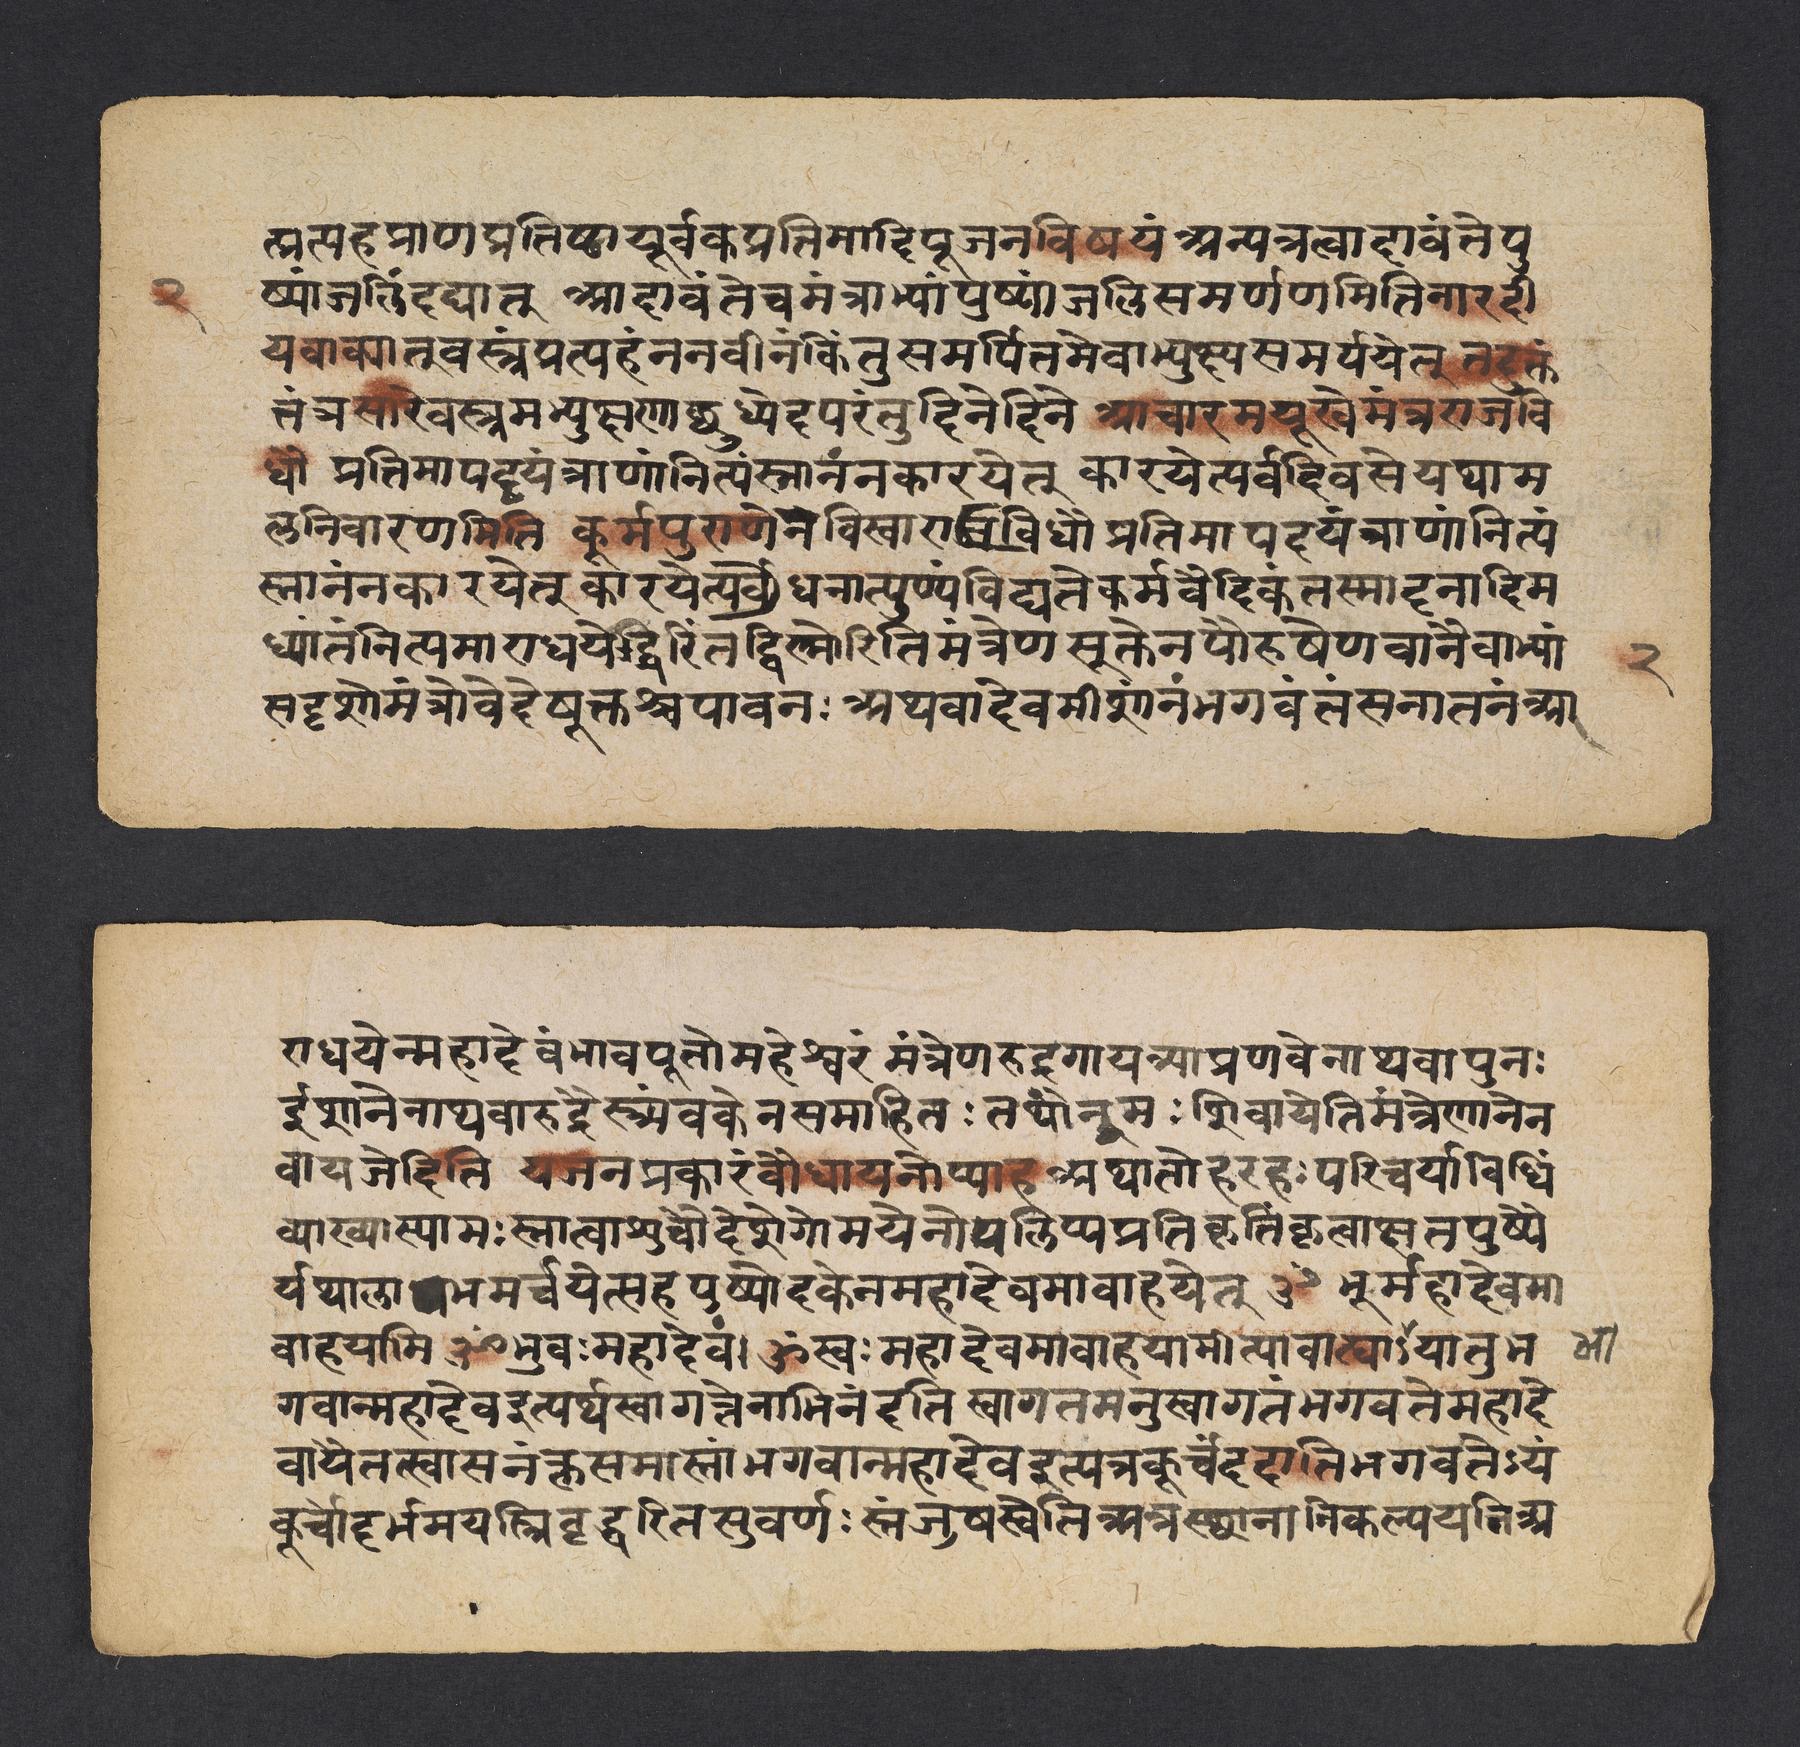 त्प्रत्यहप्राणप्रतिष्ठापूर्वकप्रतिमादिपूजनविषयं अन्यत्रत्वादावंतेपु
ष्पांजलिंदद्यात् आदावंतेचमंत्राभ्यांपुष्पांजलिसमर्पणमितिनारदी
यवाक्यात् वस्त्रंप्रत्यहंननवीनंकिंतुसमर्पितमेवाभ्युक्ष्यसमर्पयेत् तदुक्तं
तंत्रसारेवस्त्रमभ्युक्षणाच्छुध्येदपरंतुदिनेदिने आचारमयूखेमंत्रराजवि
धौ प्रतिमापट्टयंत्राणांनित्यंस्नानंनकारयेत् कारयेत्पर्वदिवसेयथाम
लनिवारणमिति कूर्मपुराणेन विधौ प्रतिमापट्टयंत्राणांनित्यं
स्नानंनकारयेत् कारयेत्पर्वा धनात्पुण्यंविद्यतेकर्मवैदिकंतस्मादनादिम
ध्यांतंनित्यमाराधयेद्धरिंतद्विष्णोरितिमंत्रेणसूक्तेनपौरुषेणवानैवाभ्यां
सदृशोमंत्रोवेदेषूक्तश्चपावनः अथवादेवमीशानंभगवंतंसनातनंआ
२
२
राधयेन्महादेवंभावपूतोमहेश्वरं मंत्रेणरुद्रगायत्र्याप्रणवेनाथवापुनः
ईशानेनाथवारुद्रैस्त्र्यंबकेनसमाहितः तथोंनमःशिवायेतिमंत्रेणानेन
वायजेदिति यजनप्रकारंबौधायनोप्याह अथातोहरहःपरिचर्याविधिं
व्याख्यास्यामःस्नात्वाशुचौदेशेगोमयेनोपलिप्यप्रतिकृतिंकृत्वाक्षतपुष्पै
र्यथालाभमर्चयेत्सहपुष्पोदकेनमहादेवमावाहयेत् ॐ भूर्महादेवमा
वाहयामि ॐ भुवःमहादेवं। ॐस्वःमहादेवमावाहयामीत्यावाह्याऽयातुभ
गवान्महादेवइत्यर्थस्वागतेनाभिनंदतिस्वागतमनुस्वागतंभगवतेमहादे
वायैतत्स्वासनंक्लृ समास्तांभगवान्महादेवइत्यत्रकूर्चंददातिभगवतेऽयं
कूर्चोदर्भमयस्त्रिवृद्धरितसुवर्णःस्तंजुषस्वेतिअत्रस्थानानिकल्पयतिअ
मा